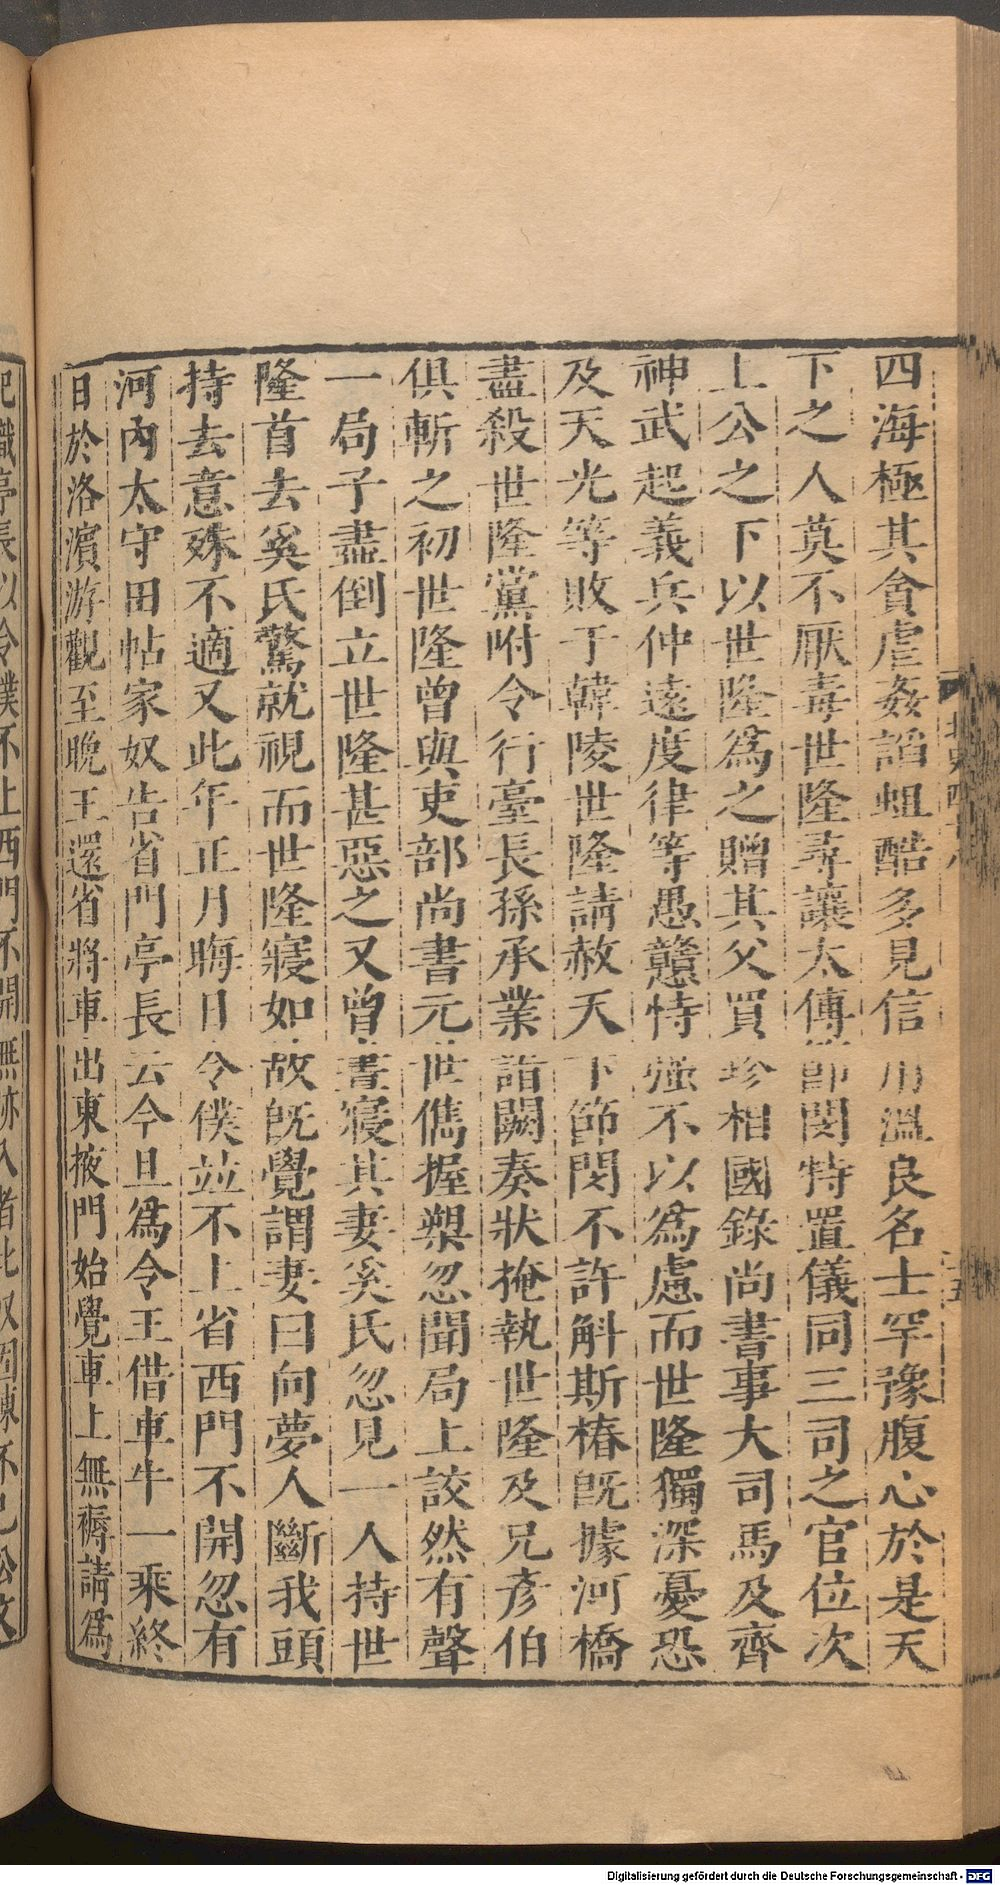 四海極其貪虐姦諂蛆酷多見信用溫良名士罕豫腹心於是天
下之人莫不厭毒世隆尋讓太傅節閔特置儀同三司之官位次
上公之下以世隆爲之贈其父買珍相國錄尚書事大司馬及齊
神武起義兵仲遠度律等愚戇恃强不以爲慮而世隆獨深憂恐
及天光等敗于韓陵世隆請赦天下節閔不許斛斯椿旣據河橋
盡殺世隆黨附令行臺長孫承業詣闕奏狀掩執世隆及兄彥伯
俱斬之初世隆曾與吏部尚書元世儁握槊忽聞局上詨然有聲
一局子盡倒立世隆甚惡之又曾晝寢其妻奚氏忽見一人持世
隆首去奚氏驚就視而世隆寢如故旣覺謂妻曰向夢人斷我頭
持去意殊不適又此年正月晦日令僕並不上省西門不開忽有
河內太守田帖家奴告省門亭長云今旦爲令王借車牛一乘終
日於洛濱游觀至晚王還省將車出東掖門始覺車上無褥請爲
記識亭長以令僕不上西門不開無跡入者此奴固陳不已公文
北史四十八
Digitalisierung gefördert durch die Deutsche Forschungsgemeinschaft - DFG